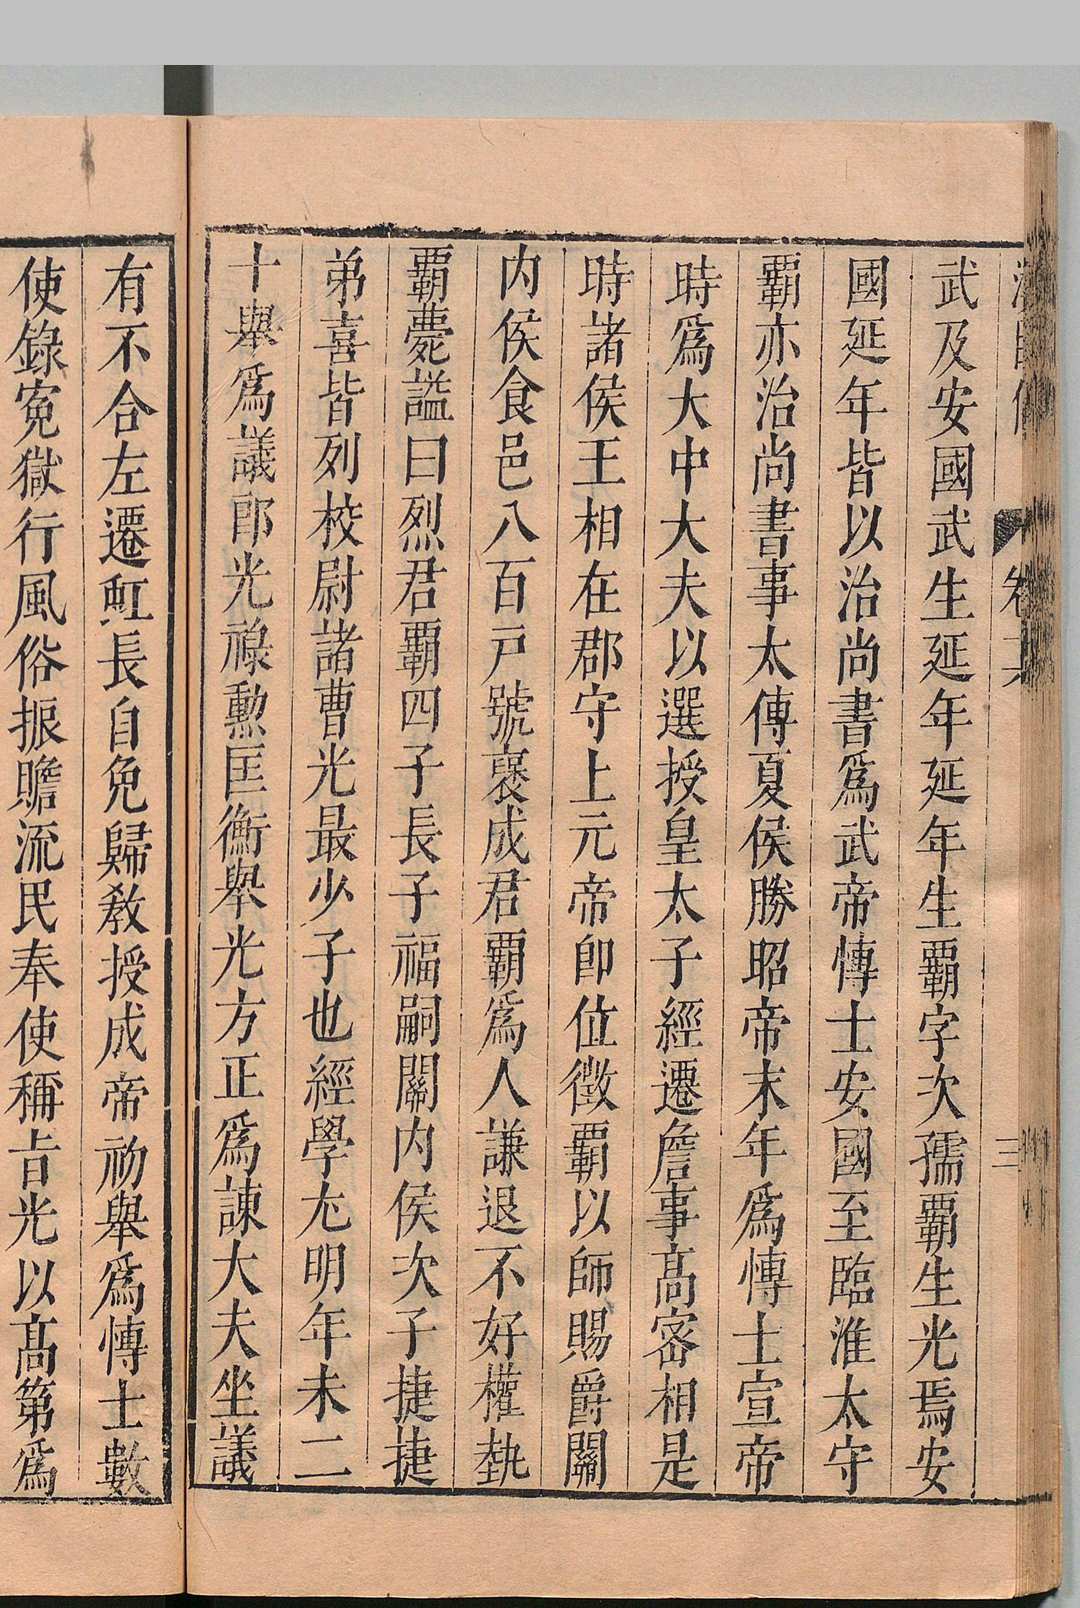 卷六
三
武及安國武生延年延年生覇字次孺覇生光焉安
國延年皆以治尚書爲武帝愽士安國至臨淮太守
覇亦治尚書事太傅夏侯勝昭帝末年爲愽士宣帝
時爲大中大夫以選授皇太子經遷詹事髙宻相是
時諸侯王相在郡守上元帝卽位徴覇以師賜爵關
内侯食邑八百戸號襃成君覇爲人謙退不好權埶
覇薨諡曰烈君覇四子長子福嗣關内侯次子捷捷
弟喜皆列校尉諸曹光最少子也經學尢明年未二
十舉爲議郎光祿勲匡衡舉光方正爲諫大夫坐議
有不合左遷虹長自免歸教授成帝初舉爲愽士數
使錄寃獄行風俗振贍流民奉使稱旨光以髙第爲